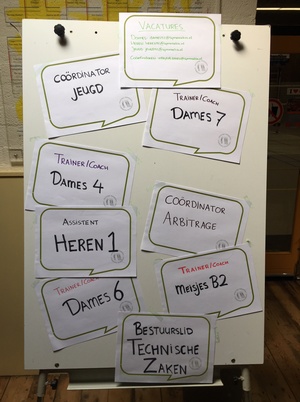 VACATURES
COÖRDINATOR
JEUGD
TRAINER/COACH
DAMES 7
TRAINER/COACH
DAMES 4
COÖRDINATOR
ARBITRAGE
ASSISTENT
HEREN 1
TRAINER/COACH
MEISJES B2
TRAINER/COACH
DAMES 6
BESTUURSLID
TECHNISCHE
ZAKEN